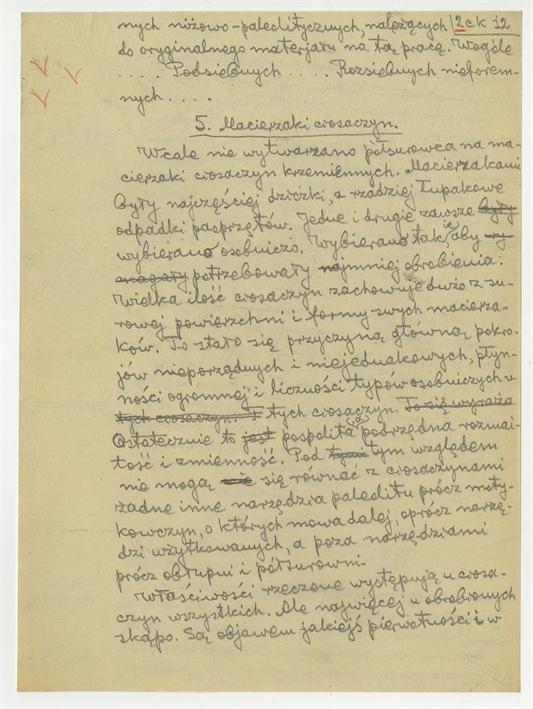 nych niżowo-paleolitycznych, należących 2 c k 12
do oryginalnego materjału na tą pracę. Wogóle
.... Podsielnych .... Rozsielnych nieforem-
nych ....
5. Macierzaki ciosaczyn.
Wcale nie wytwarzano półsurowca na ma-
cierzaki ciosaczyn krzemiennych. Macierzakami
były najczęściej dziczki, a rzadziej łupakowe
odpadki pasprzętów. Jedne i drugie zawsze były
wybierano osobniczo. Wybierano takie, aby wy
magały potrzebowały najmniej obrobienia.
Wielka ilość ciosaczyn zachowuje dużo z su-
rowej powierzchni i formy swych macierza-
ków. To stało się przyczyną główną pokro-
jów nieporządnych i niejednakowych, płyn-
ności ogromnej i liczności typów osobniczych u
tych ciosaczyn. I tych ciosaczyn. To się wyraża
Ostatecznie to jest pospolita ich podrzędna rozmai-
tość i zmienność. Pod tym względem
nie mogą się równać z ciosaczynami
żadne inne narzędzia paleolitu prócz moty-
kowczyn, o których mowa dalej, oprócz narzę-
dzi użytkowanych, a poza narzędziami
prócz obłupni i półsurowni.
Właściwości rzeczone występują u ciosa-
czyn wszystkich. Ale najwięcej u obrobionych
skąpo. Są objawem jakiejś pierwotności i w